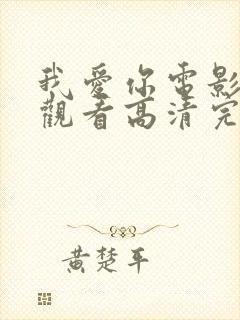 我愛你電影
觀看高清完
黃楚平